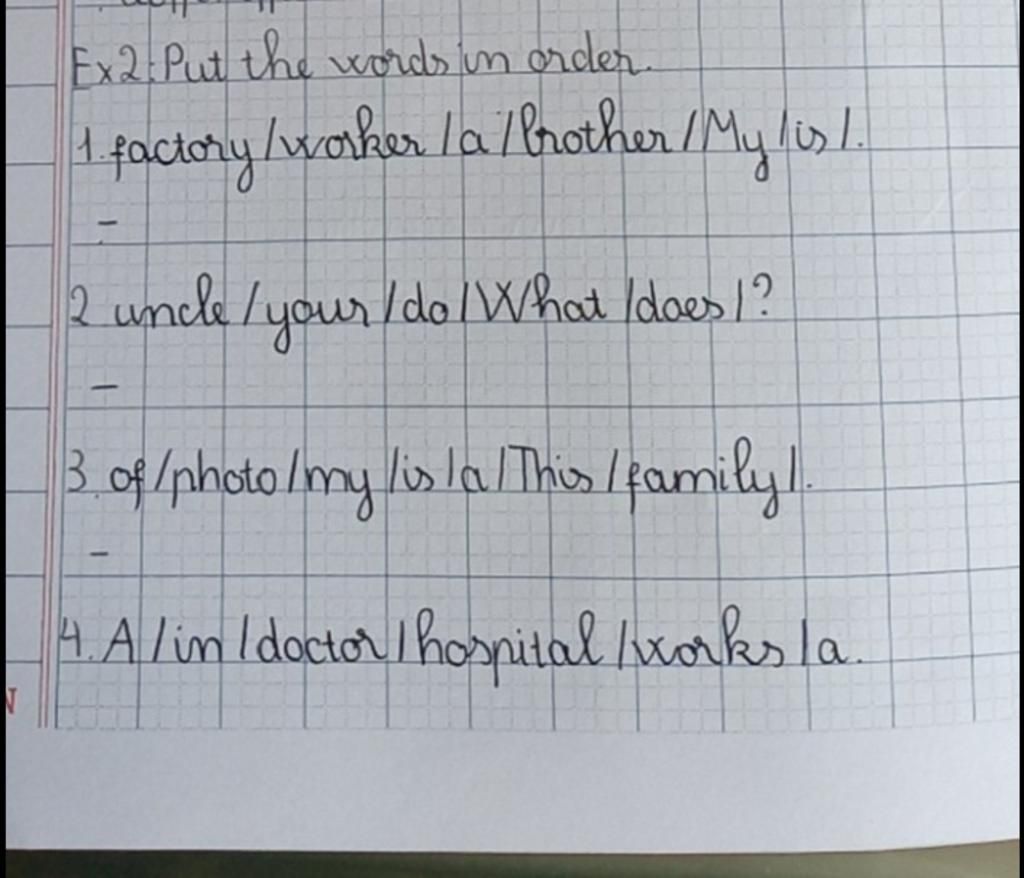 Ex2: Put the words in order.
1. factory/worker/a/brother/My/is/.
-
2 uncle/your/do/What/does/?
-
3. of/photo/my/is/a/This/family/.
-
4. A/in/doctor/hospital/works/a.